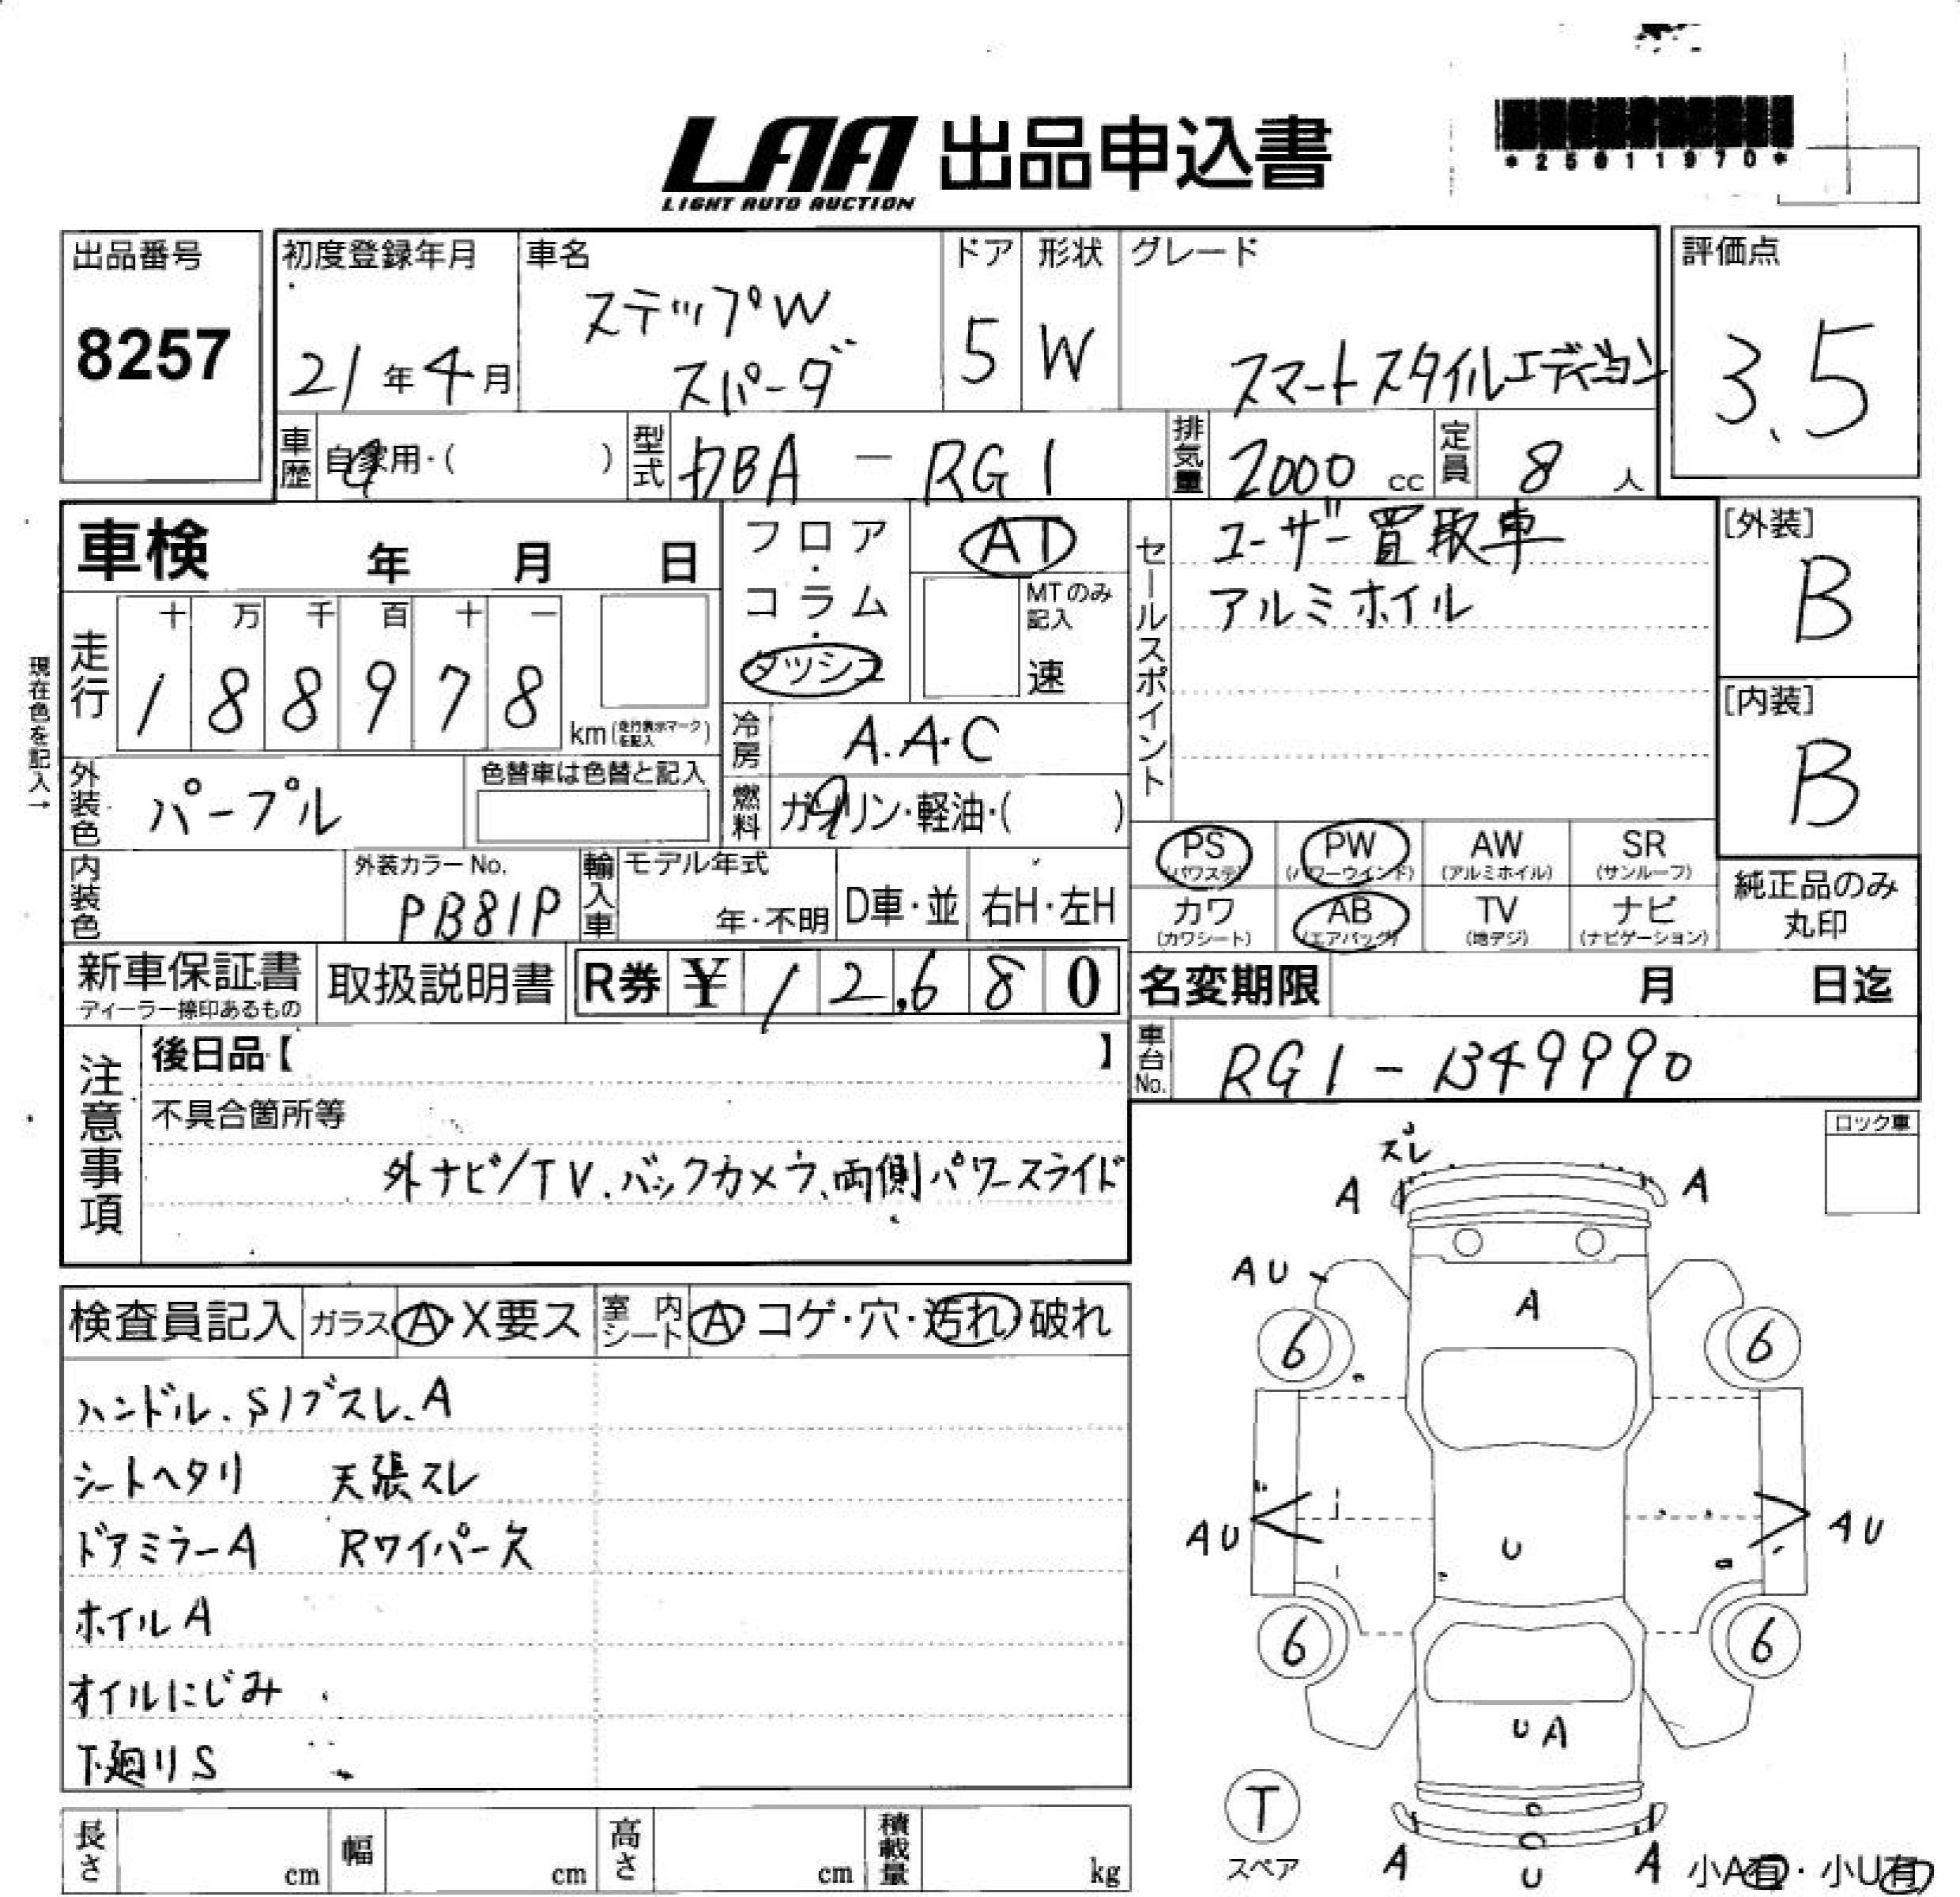 *25011970*
LAA 出品申込書
LIGHT AUTO AUCTION
出品番号
8257
初度登録年月
21年4月
車名
ステップW
スパーダ
ドア
5
形状
W
グレード
スマートスタイルエディション
評価点
3.5
車歴
自家用・( )
型式
DBA - RG1
排気量
2000 cc
定員
8 人
車検 年 月 日
フロア・コラム・ダッシュ
AT
MTのみ記入
速
セールスポイント
ユーザー買取車
アルミホイル
[外装]
B
[内装]
B
現在色を記入→
走行
十 万 千 百 十 一
1 8 8 9 7 8
km(走行表示マークを記入)
冷房
A.A.C
外装色
パープル
色替車は色替と記入
燃料
ガソリン・軽油・( )
内装色
外装カラーNo.
PB81P
輸入車
モデル年式
年・不明
D車・並
右H・左H
PS
(パワステ)
PW
(パワーウインド)
AW
(アルミホイル)
SR
(サンルーフ)
カワ
(カワシート)
AB
(エアバック)
TV
(地デジ)
ナビ
(ナビゲーション)
純正品のみ
丸印
新車保証書
ディーラー捺印あるもの
取扱説明書
R券 ¥ 12,680
名変期限 月 日迄
車台No.
RG1-1349990
注意事項
後日品【 】
不具合箇所等
外ナビ/TV、バックカメラ、両側パワースライド
ロック車
検査員記入
ガラス
A・X要ス
室内シート
A コゲ・穴・汚れ 破れ
ハンドル、Sノブスレ、A
シートヘタリ 天張スレ
ドアミラーA Rワイパー欠
ホイルA
オイルにじみ
下廻りS
スレ
A A
AU
A
6 6
AU U AU
6 6
UA
T
スペア
A U A
小A有・小U有
長さ cm
幅 cm
高さ cm
積載量 kg